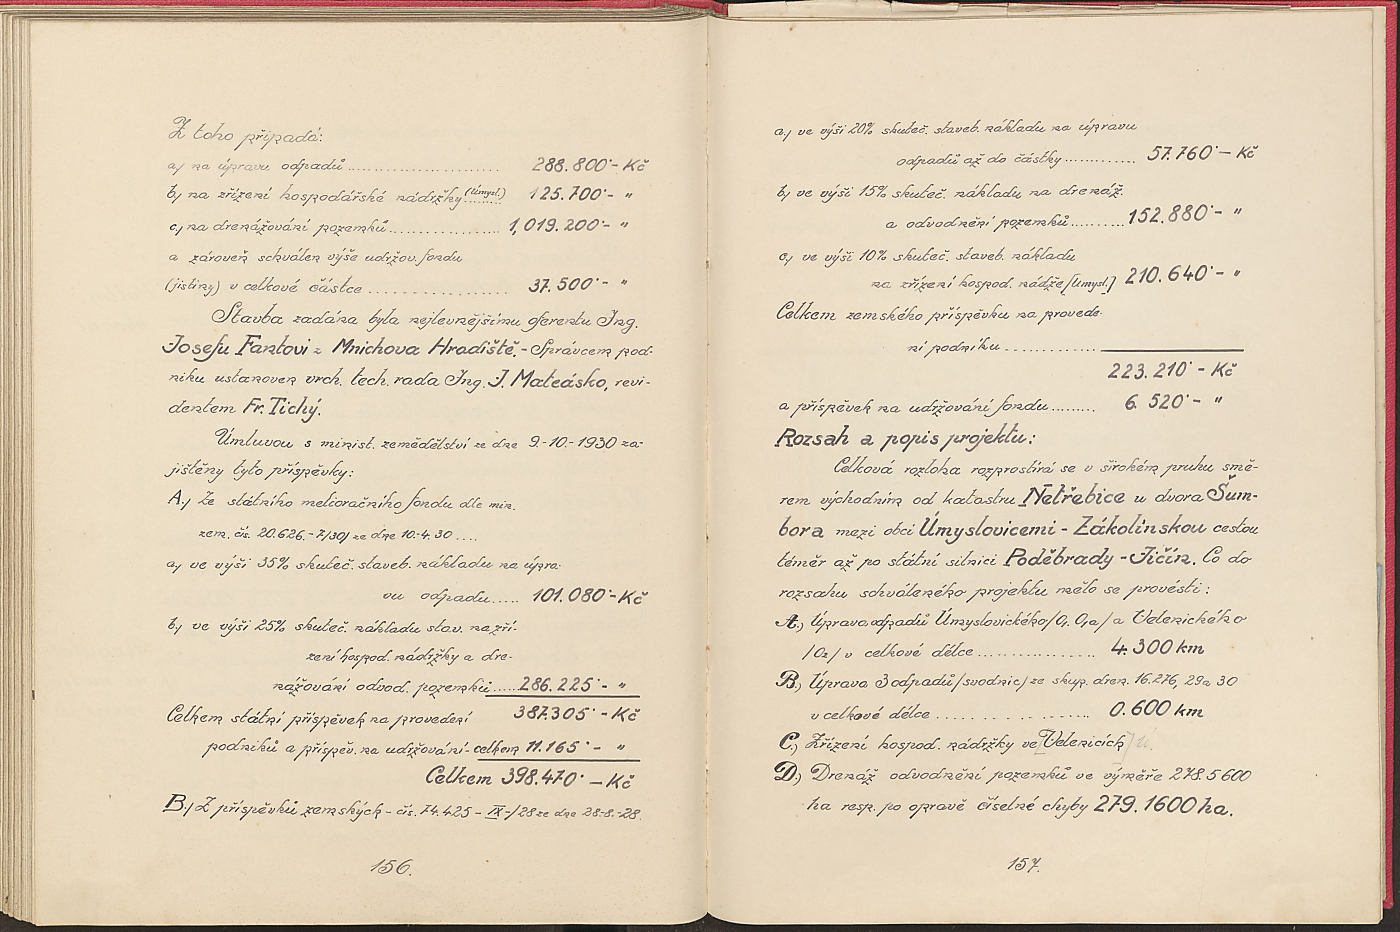 Z toho připadá:
a.) na úpravu odpadů........................ 288.800·- Kč
b.) na zřízení hospodářské nádržky (Úmysl.) 125.700·- "
c.) na drenážování pozemků.................. 1,019.200·- "
a zároveň schválen výše udržov. fondu
(jistiny) v celkové částce .................. 37.500·- "
Stavba zadána byla nejlevnějšímu oferentu Ing.
Josefu Fantovi z Mnichova Hradiště.- Správcem pod-
niku ustanoven vrch. tech. rada Ing. J. Mateásko, revi-
dentem Fr. Tichý.
Úmluvou s minist. zemědělství ze dne 9.-10.-1930 za-
jištěny tyto příspěvky:
A.) Ze státního melioračního fondu dle min.
zem. čís. 20.626.-7/30/ ze dne 10.-4.30 ....
a.) ve výši 35% skuteč. staveb. nákladu na úpra-
vu odpadu..... 101.080·- Kč
b.) ve výši 25% skuteč. nákladu stav. na zří-
zení hospod. nádržky a dre-
nážování odvod. pozemků......286.225·- "
Celkem státní příspěvek na provedení 387.305·- Kč
podniků a příspěv. na udržování-celkem 11.165·- "
Celkem 398.470·- Kč
B.) Z příspěvků zemských - čís. 74.425 - IX-/28 ze dne 28.-8.-28.
156.
a.) ve výši 20% skuteč. staveb. nákladu na úpravu
odpadů až do částky............. 57.760·- Kč
b.) ve výši 15% skuteč. nákladu na drenáž.
a odvodnění pozemků..........152.880·- "
c.) ve výši 10% skuteč. staveb. nákladu
na zřízení hospod. nádrže [Úmysl.] 210.640·- "
Celkem zemského příspěvku na provede-
ní podniku ..............
223.210·- Kč
a příspěvek na udržování fondu......... 6.520·- "
Rozsah a popis projektu:
Celková rozloha rozprostírá se v širokém pruhu smě-
rem východním od katastru Netřebice u dvora Šum-
bora mezi obcí Úmyslovicemi - Zákolínskou cestou
téměř až po státní silnici Poděbrady - Jičín. Co do
rozsahu schváleného projektu mělo se provésti:
A.) Úprava odpadů Úmyslovického/O, O₁a/a Velenického
/O₂/ v celkové délce .................. 4.300 km
B.) Úprava 3 odpadů/svodnic/ ze skup. dren. 16.27b, 29 a 30
v celkové délce ........................ 0.600 km
C.) Zřízení hospod. nádržky ve [Velenicích]
D.) Drenáž odvodnění pozemků ve výměře 278.5600
ha resp. po opravě číselné chyby 279.1600 ha.
157.